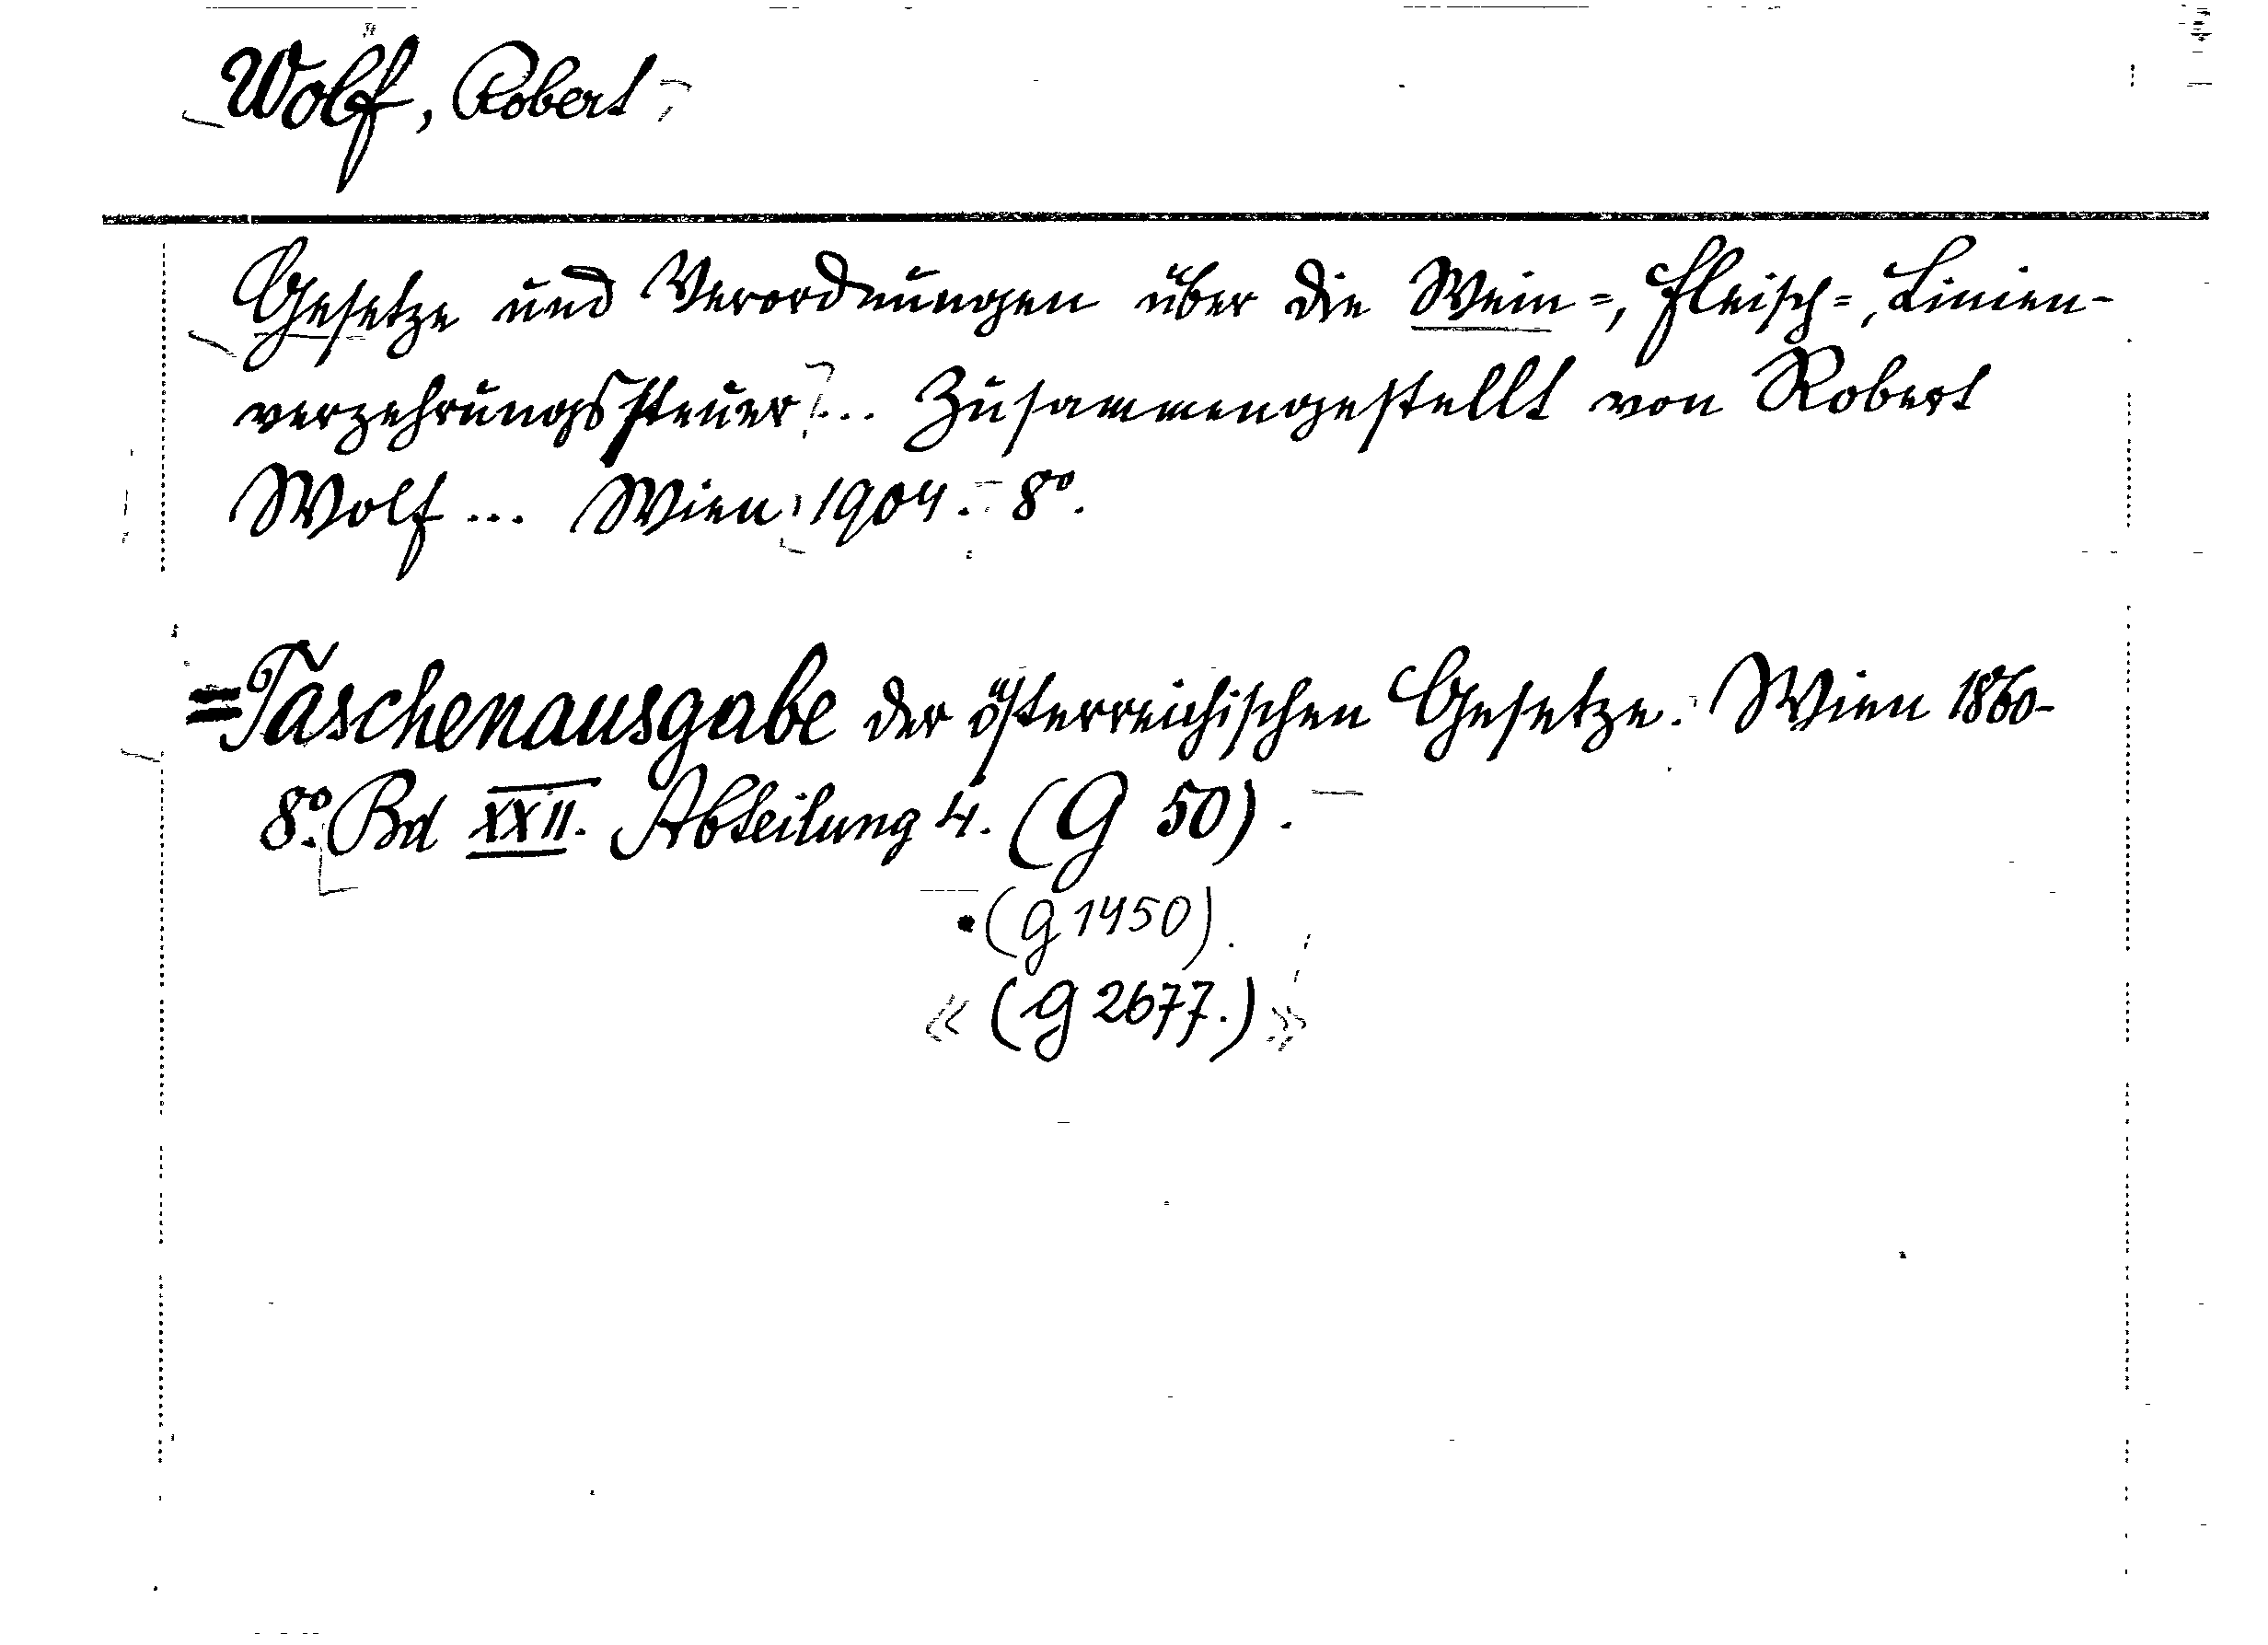 Wolf, Robert
Gesetze und Verordnungen über die Wein=, Fleisch=, Linien-
verzehrungssteuer... Zusammengestellt von Robert
Wolf... Wien, 1904. - 8°.
=Taschenausgabe der österreichischen Gesetze. Wien 1860-
8°. Bd XXII. Abteilung 4. (G 50).
(G 1450).
« (G 2677.) »